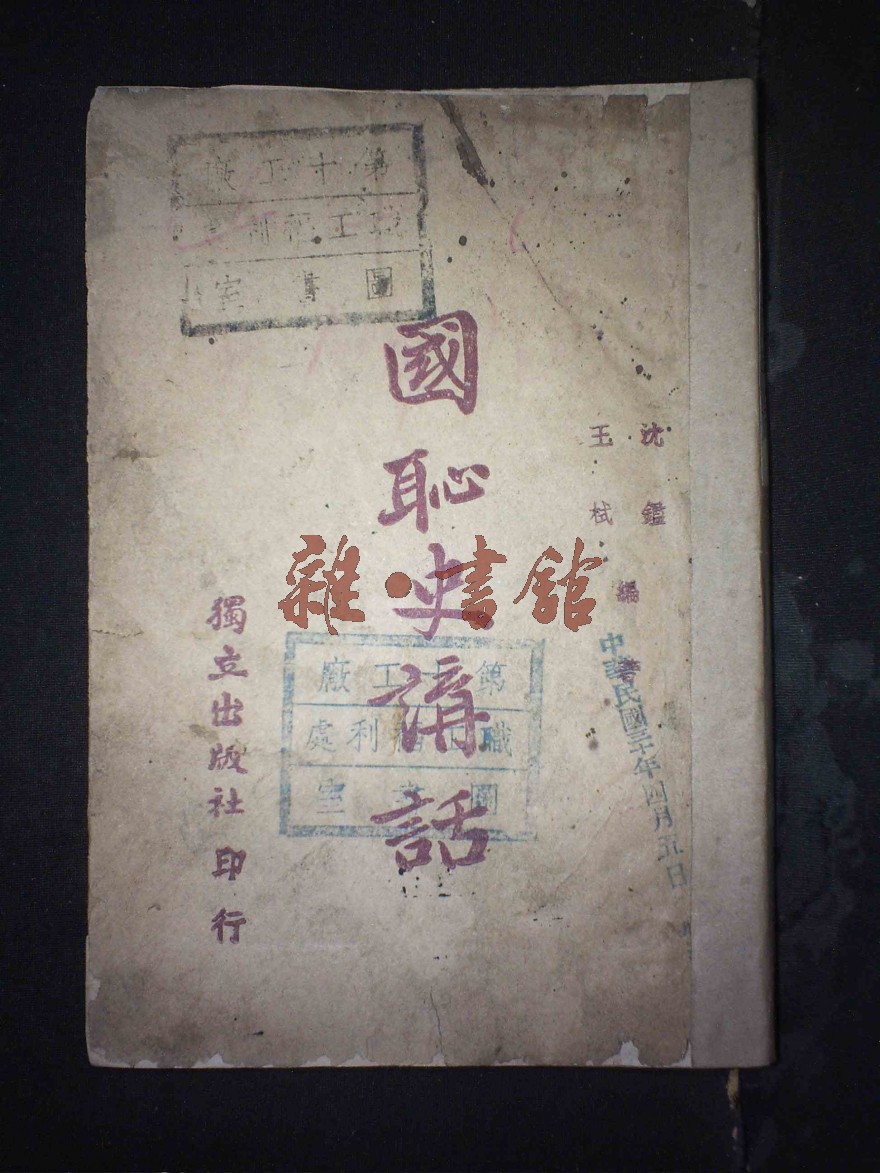 沈鑑
王栻
編著
國恥史講話
獨立出版社印行
第十工廠
職工福利處
圖書室
第十工廠
職工福利處
圖書室
中華民國三十年四月五日
雜·書館